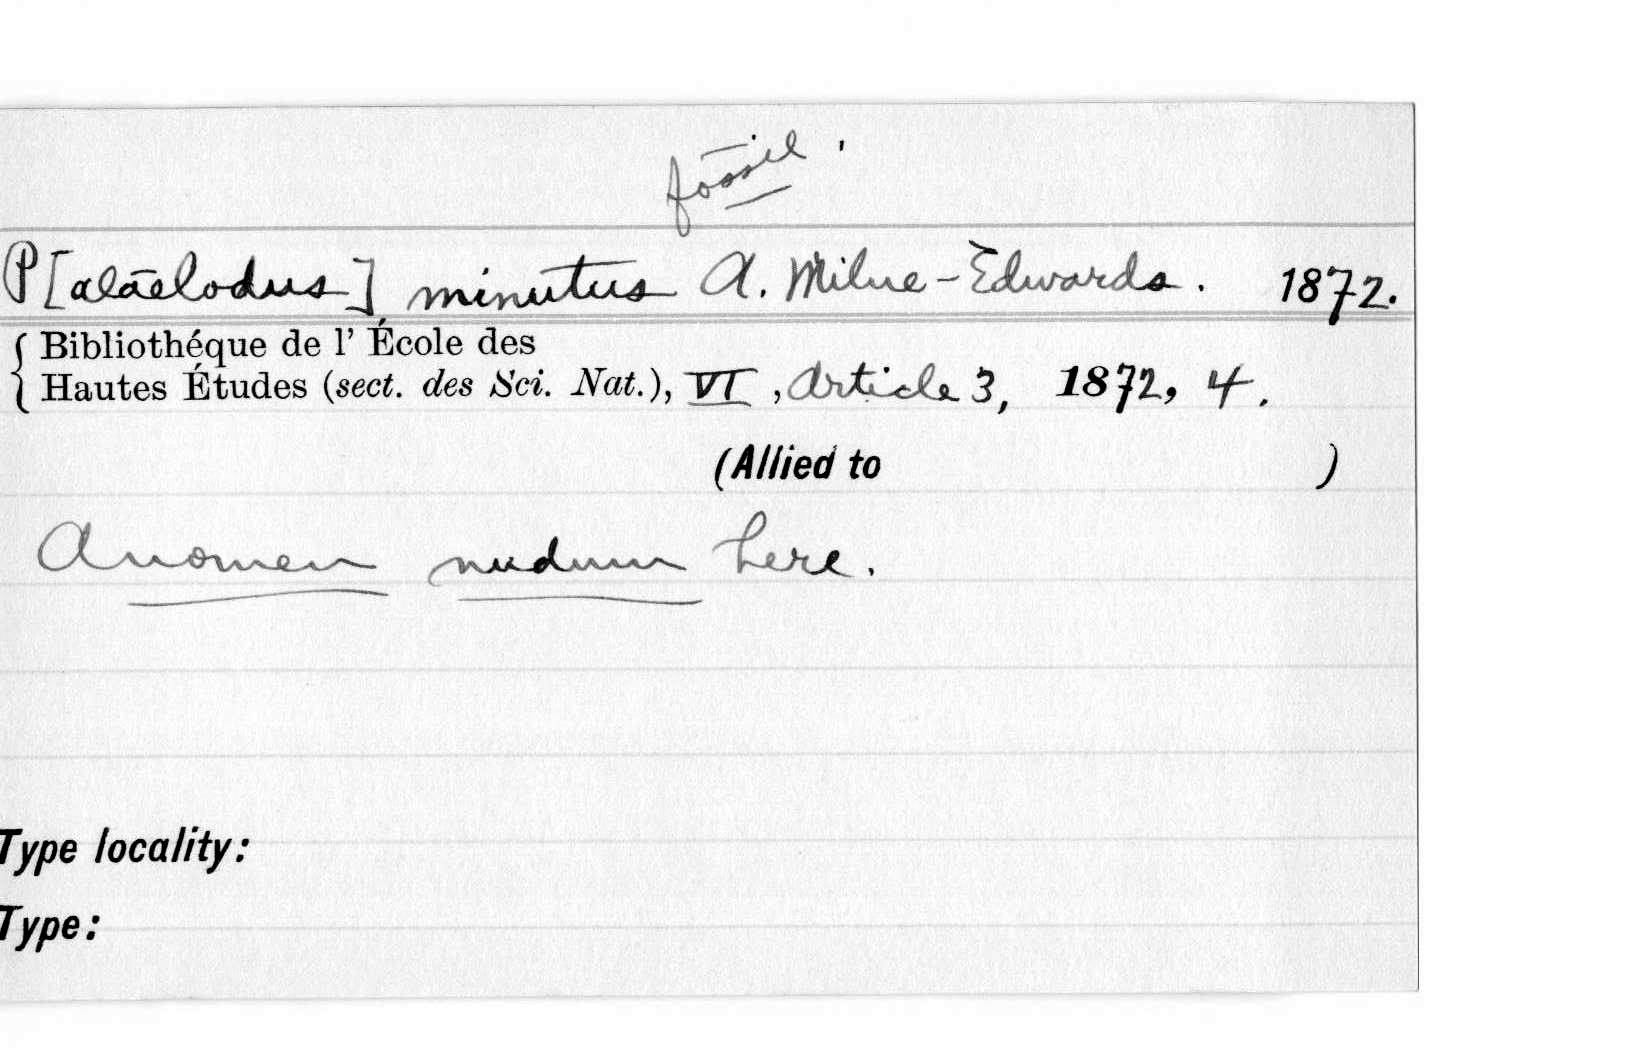 fossil.
P[alaelodus] minutus A. Milne-Edwards. 1872.
Bibliothéque de l' École des
Hautes Études (sect. des Sci. Nat.), VI, Article 3, 1872, 4.
(Allied to )
A nomen nudum here.
Type locality:
Type: